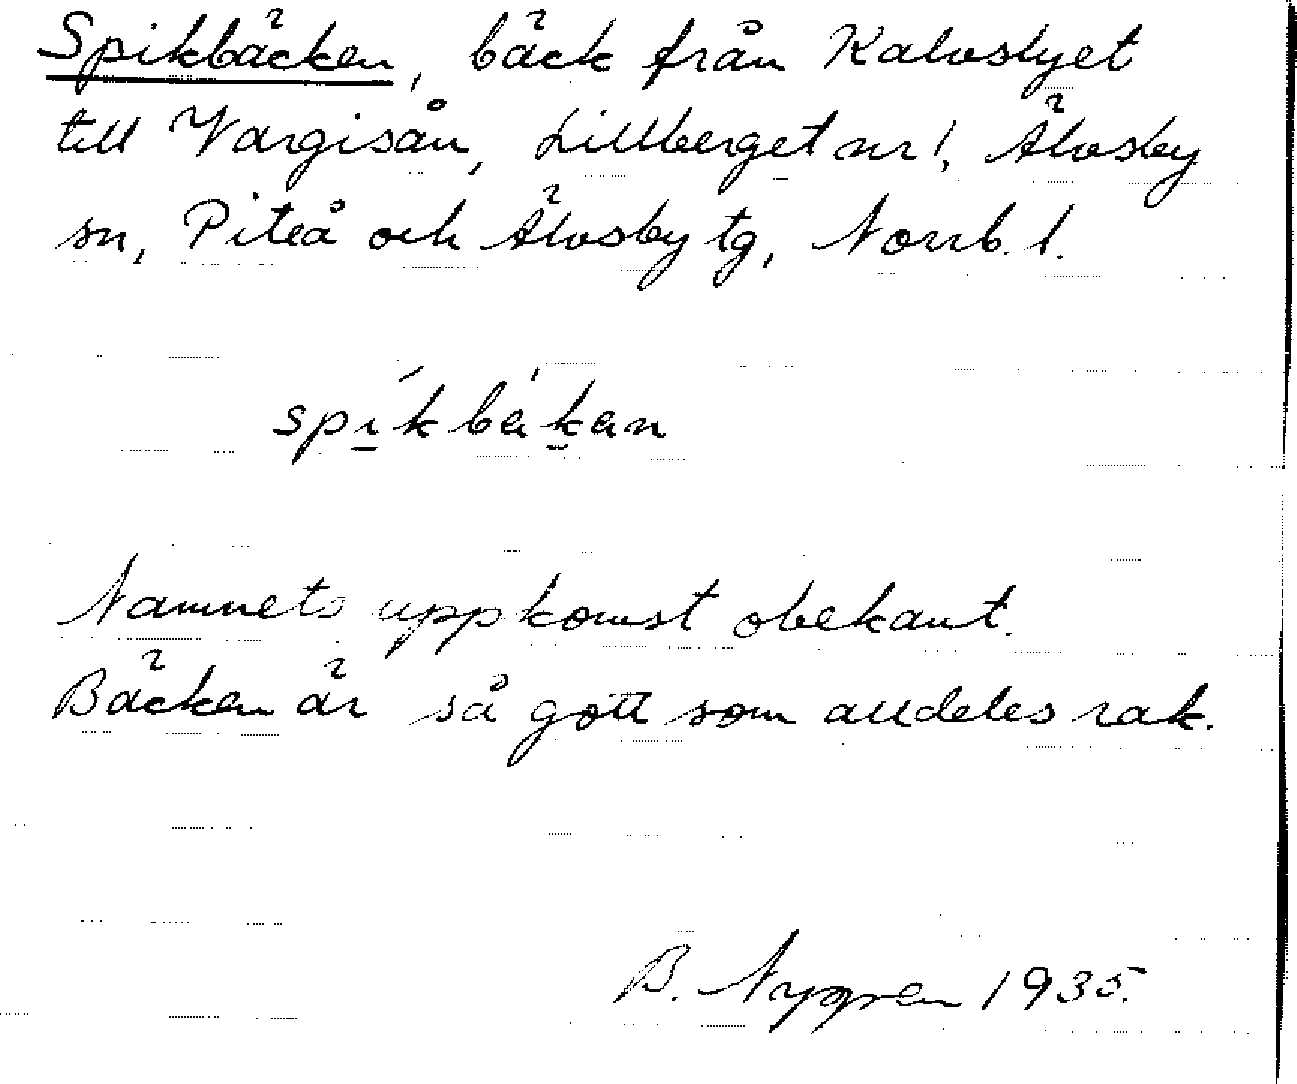 Spikbäcken, bäck från Kalvslyet
till Vargisån, Lillberget nr 1, Älvsby
sn, Piteå och Älvsby tg, Norrb. l.
spikbäkan
Namnets uppkomst obekant.
Bäcken är så gott som alldeles rak.
B. Nygren 1935.